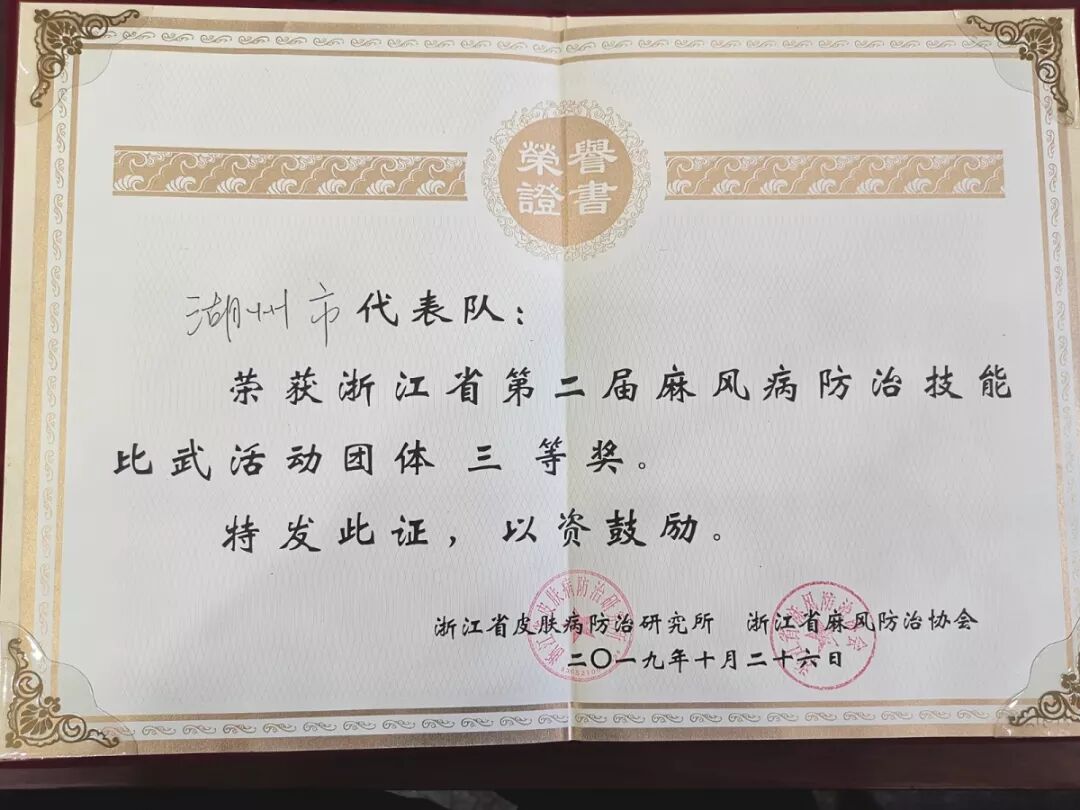 榮譽
證書
湖州市代表队：
荣获浙江省第二届麻风病防治技能
比武活动团体三等奖。
特发此证，以资鼓励。
浙江省皮肤病防治研究所 浙江省麻风防治协会
二〇一九年十月二十六日